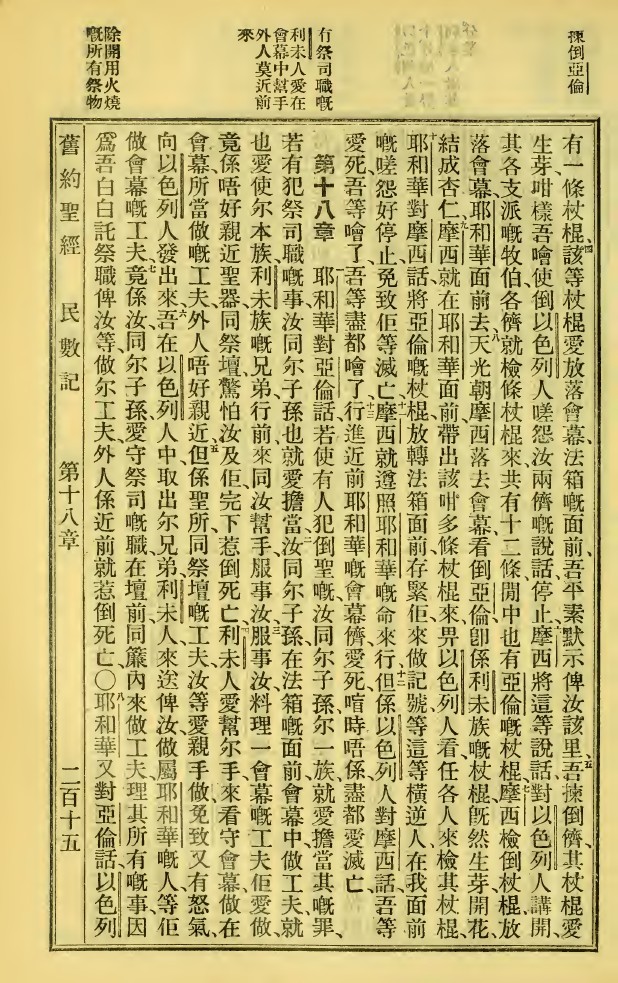 揀倒亞倫
冇祭司職嘅
利未人愛在
會幕中幫手
外人莫近前
來
除開用火燒
嘅所有祭物
有一條杖棍、四該等杖棍愛放落會幕、法箱嘅面前、吾平素默示俾汝該里、五吾揀倒儕、其杖棍愛
生芽、咁樣吾噲使倒以色列人嗟怨汝兩儕嘅說話停止、六摩西將這等說話、對以色列人講開、
其各支派嘅牧伯、各儕就檢條杖棍來、共有十二條、閒中也有亞倫嘅杖棍、七摩西檢倒杖棍、放
落會幕、耶和華面前去、八天光朝、摩西落去會幕、看倒亞倫、卽係利未族嘅杖棍、旣然生芽開花、
結成杏仁、九摩西就在耶和華面前、帶出該咁多條杖棍來、畀以色列人看、任各人來檢其杖棍、
十耶和華對摩西話、將亞倫嘅杖棍、放轉法箱面前、存緊佢來做記號、等這等橫逆人、在我面前
嘅嗟怨好停止、免致佢等滅亡、十一摩西就遵照耶和華嘅命來行、十二但係以色列人對摩西話、吾等
愛死、吾等噲了、吾等盡都噲了、十三行進近前耶和華嘅會幕儕、愛死、唔時唔係盡都愛滅亡、
第十八章　一耶和華對亞倫話、若使有人犯倒聖嘅、汝同尔子孫、尔一族就愛擔當其嘅罪、
若有犯祭司職嘅事、汝同尔子孫也就愛擔當、二汝同尔子孫在法箱嘅面前、會幕中做工夫、就
也愛使尔本族、利未族嘅兄弟行前來、同汝幫手服事汝、三服事汝料理一會幕嘅工夫、佢愛做、
竟係唔好親近聖器、同祭壇、驚怕汝及佢完下惹倒死亡、四利未人愛幫尔手、來看守會幕、做在
會幕所當做嘅工夫、外人唔好親近、五但係聖所、同祭壇嘅工夫、汝等愛親手做、免致又有怒氣、
向以色列人發出來、六吾在以色列人中、取出尔兄弟利未人來、送俾汝、做屬耶和華嘅人、等佢
做會幕嘅工夫、七竟係汝同尔子孫、愛守祭司嘅職、在壇前、同簾內來做工夫、理其所有嘅事、因
爲吾白白託祭職俾汝等、做尔工夫、外人係近前、就惹倒死亡、○八耶和華又對亞倫話、以色列
舊約聖經　民數記　第十八章　二百十五